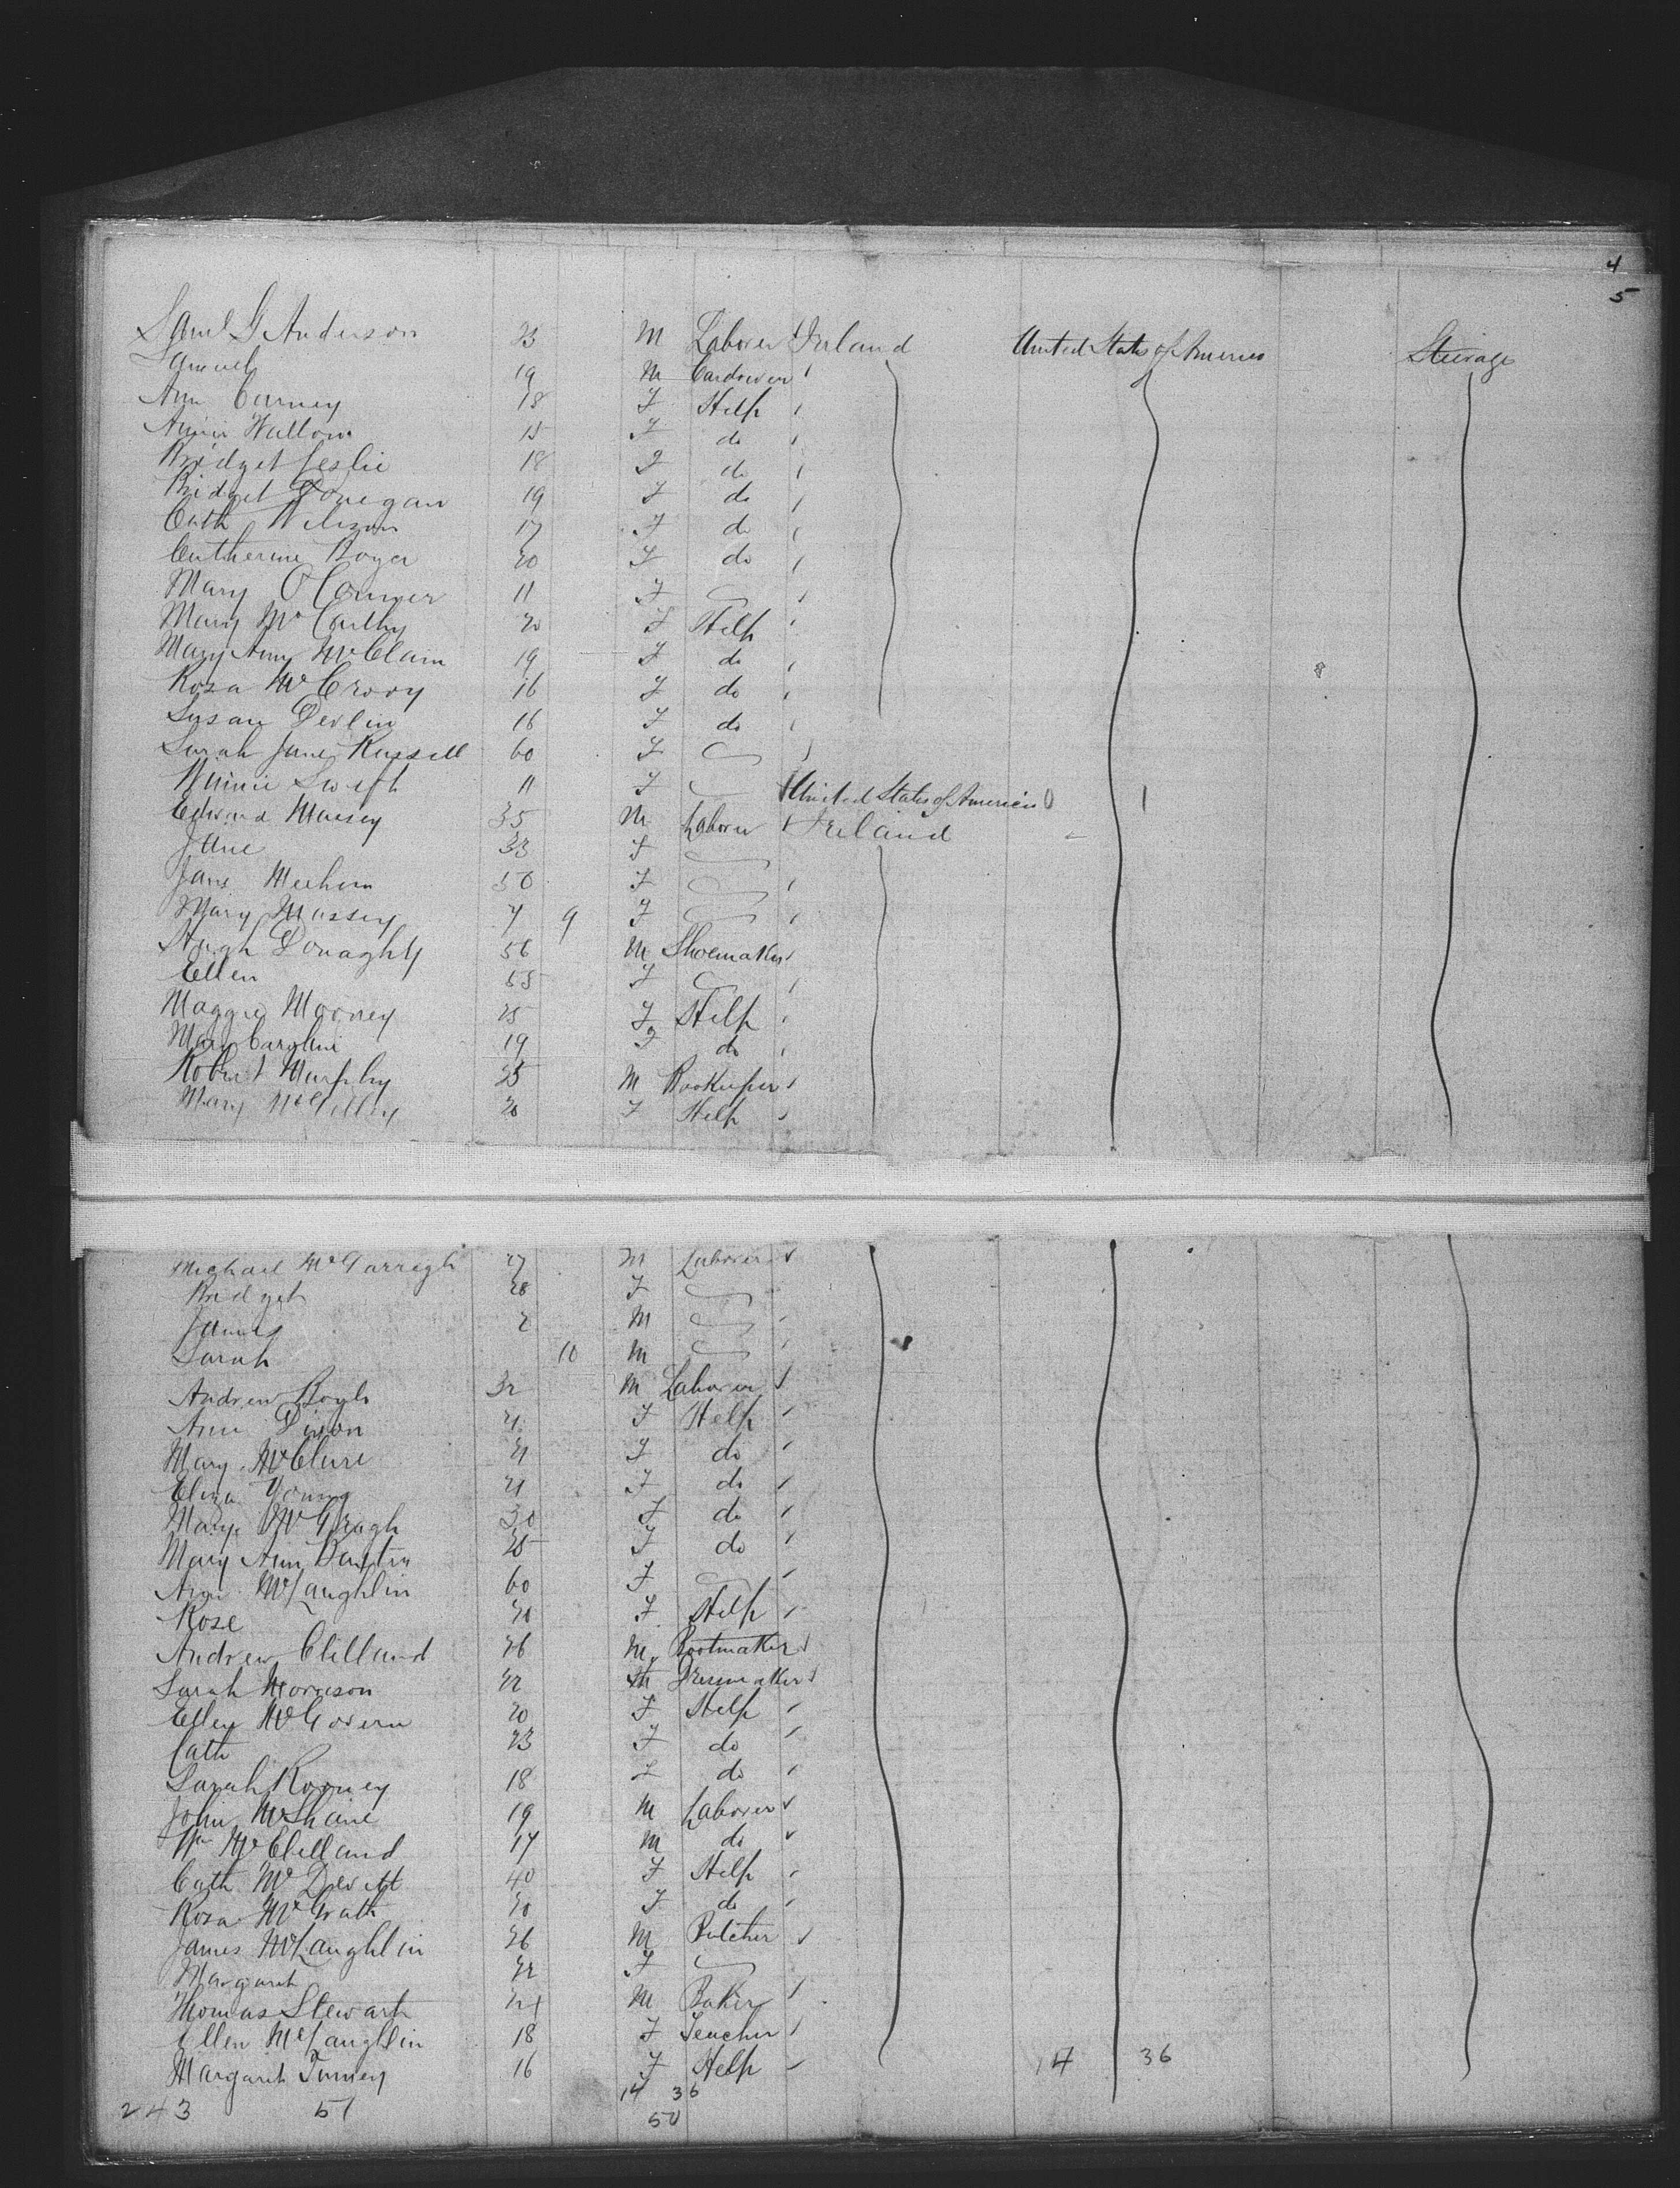 4
5
Saml G Anderson 23 M Laborer Ireland United States of America Steerage
Samuel 19 M
Ann Carney 18 F Help
Annie 15 F do
Bridget Leslie 18 F do
Bridget Donegan 19 F do
Cath Wilson 17 F do
Catherine Boyer 20 F do
Mary O'Conner 11 F
Mary McCarthy 20 F Help
Mary Ann McClain 19 F do
Rosa McCrory 16 F do
Susan Devlin 16 F do
Sarah Jane Russell 60 F
Winnie Swift 11 F United States of America 1
Edward Massey 35 M Laborer Ireland
Jane 33 F
Jane Meehan 50 F
Mary Massey 7 9 F
Hugh Donaghy 56 M Shoemaker
Ellen 55 F
Maggie Mooney 25 F Help
Mary Caroline 19 F do
Robert Murphy 25 M Bookeeper
Mary 20 F Help
Michael McGarragh 27 M Laborer
Bridget 28 F
James 2 M
Sarah 10 M
Andrew Boyle 32 M Laborer
Ann Dixon 21 F Help
Mary McClure 21 F do
Eliza Young 21 F do
Mary 30 F do
Mary Ann 25 F do
Ann McLaughlin 60 F
Rose 20 F Help
Andrew Clelland 26 M Bootmaker
Sarah Morrison 22 Dressmaker
Ellen McGovern 20 F Help
Cath 23 F do
Sarah Rooney 18 F do
John McShane 19 M Laborer
Wm McClelland 17 M do
Cath McDevitt 40 F Help
Rosa McGrath 20 F do
James McLaughlin 26 M Butcher
Margaret 22 F
Thomas Stewart 21 M Baker
Ellen McLaughlin 18 F Teacher
Margaret 16 F Help 14 36
14 36
243 51 50